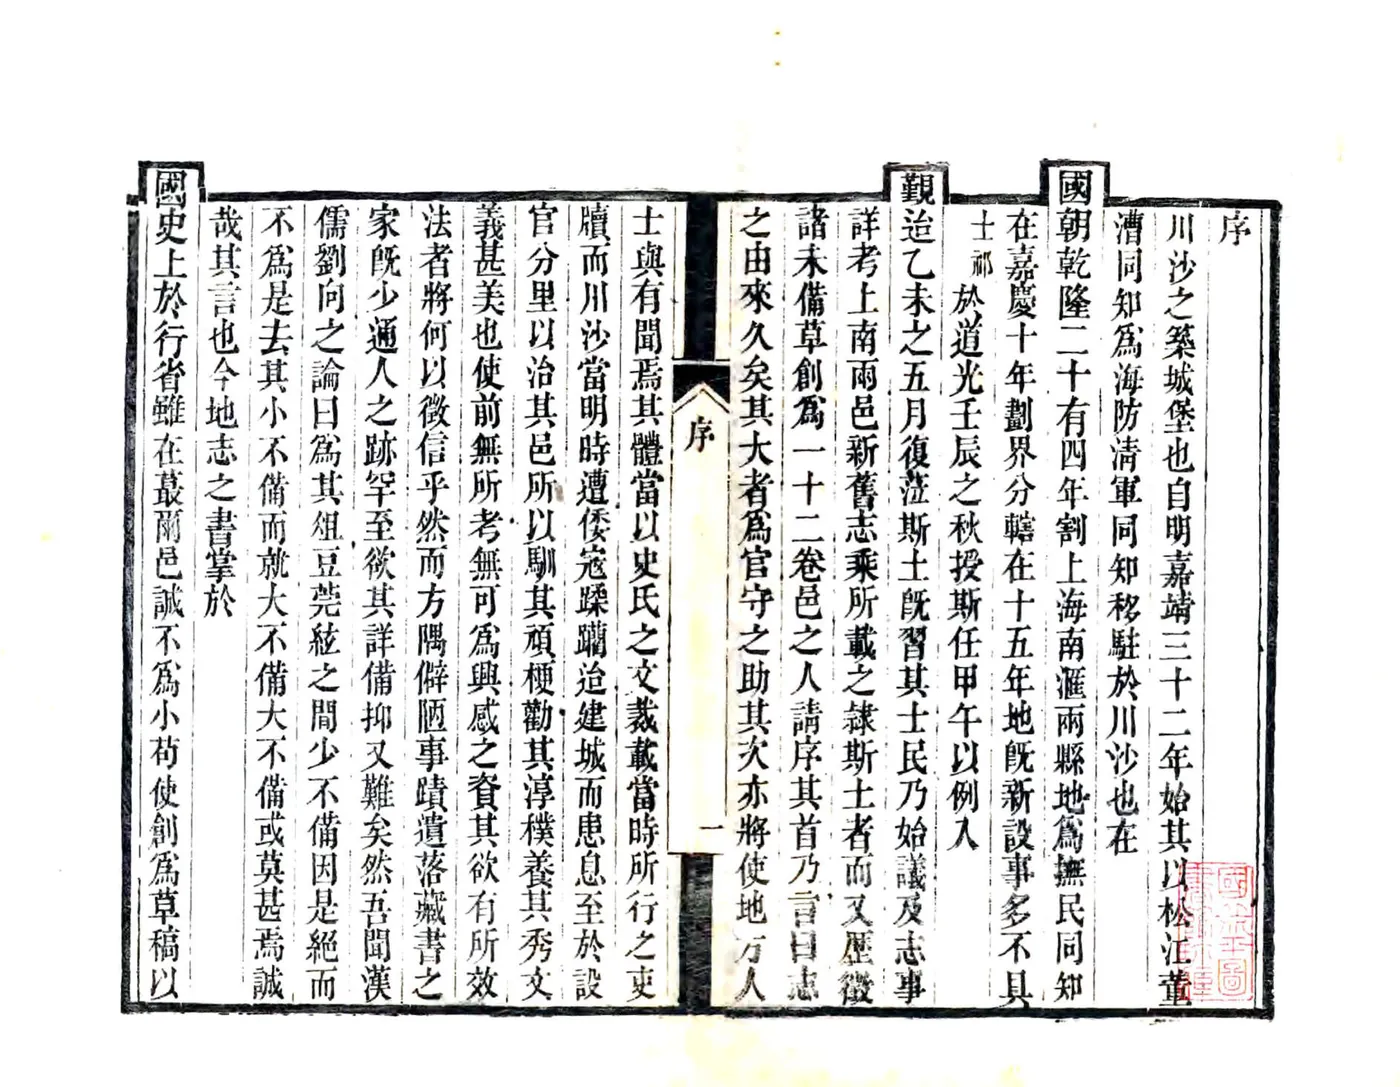 序
川沙之築城堡也自明嘉靖三十二年始其以松江董
漕同知為海防清軍同知移駐於川沙也在
國朝乾隆二十有四年割上海南滙兩縣地為撫民同知
在嘉慶十年劃界分轄在十五年地既新設事多不具
士祁於道光壬辰之秋授斯任甲午以例入
覲迨乙未之五月復蒞斯土既習其士民乃始議及志事
詳考上南兩邑新舊志乘所載之隸斯土者而又歷徵
諸未備草創為一十二卷邑之人請序其首乃言曰志
之由來久矣其大者為官守之助其次亦將使地方人
序
一
士與有聞焉其體當以史氏之文裁載當時所行之吏
牘而川沙當明時遭倭寇蹂躪迨建城而患息至於設
官分里以治其邑所以馴其頑梗勸其淳樸養其秀文
義甚美也使前無所考無可為興感之資其欲有所效
法者將何以徵信乎然而方隅僻陋事蹟遺落藏書之
家既少通人之跡罕至欲其詳備抑又難矣然吾聞漢
儒劉向之論曰為其俎豆莞絃之間少不備因是絕而
不為是去其小不備而就大不備大不備或莫甚焉誠
哉其言也今地志之書掌於
國史上於行省雖在蕞爾邑誠不為小苟使創為草稿以